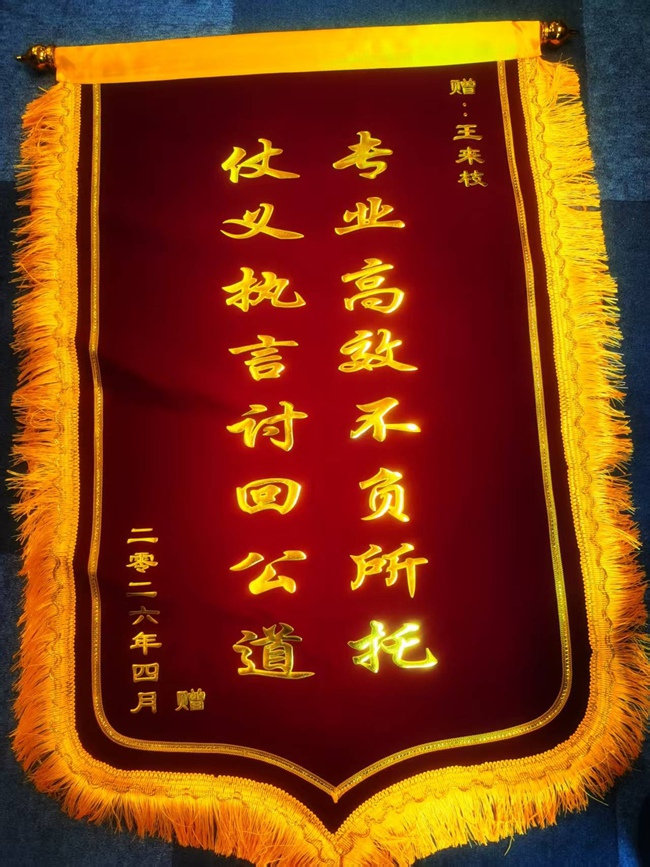 赠：王来枝
专业高效不负所托
仗义执言讨回公道
赠
二零二六年四月